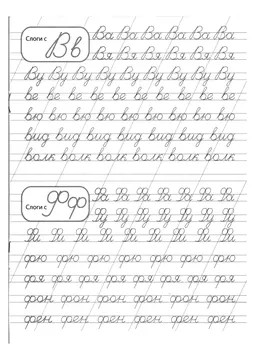 Слоги с Вв
Ва Ва Ва Ва Ва Ва
Вя Вя Вя Вя Вя Вя
Ву Ву Ву Ву Ву Ву Ву Ву
ве ве ве ве ве ве ве ве ве ве
вю вю вю вю вю вю вю вю
вид вид вид вид вид вид
волк волк волк волк волк волк
Слоги с Фф
Фа Фа Фа Фа Фа Фа
Фу Фу Фу Фу Фу Фу
Фи Фи Фи Фи Фи Фи Фи Фи
фю фю фю фю фю фю фю
фя фя фя фя фя фя фя фя
фон фон фон фон фон фон
фен фен фен фен фен фен